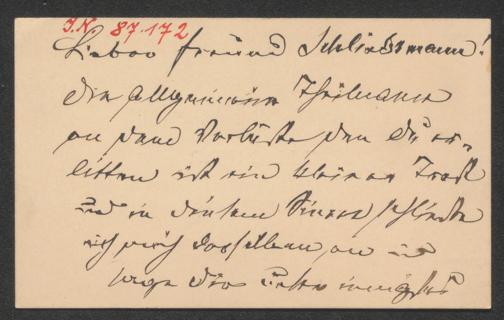 J.N. 87.172
Lieber Freund Schliessmann!
die allgemeine Theilname
an dem Verluste den du er-
litten ist ein kleiner Trost
und in diesem Sinne schließe
ich mich derselben an und
sage dir